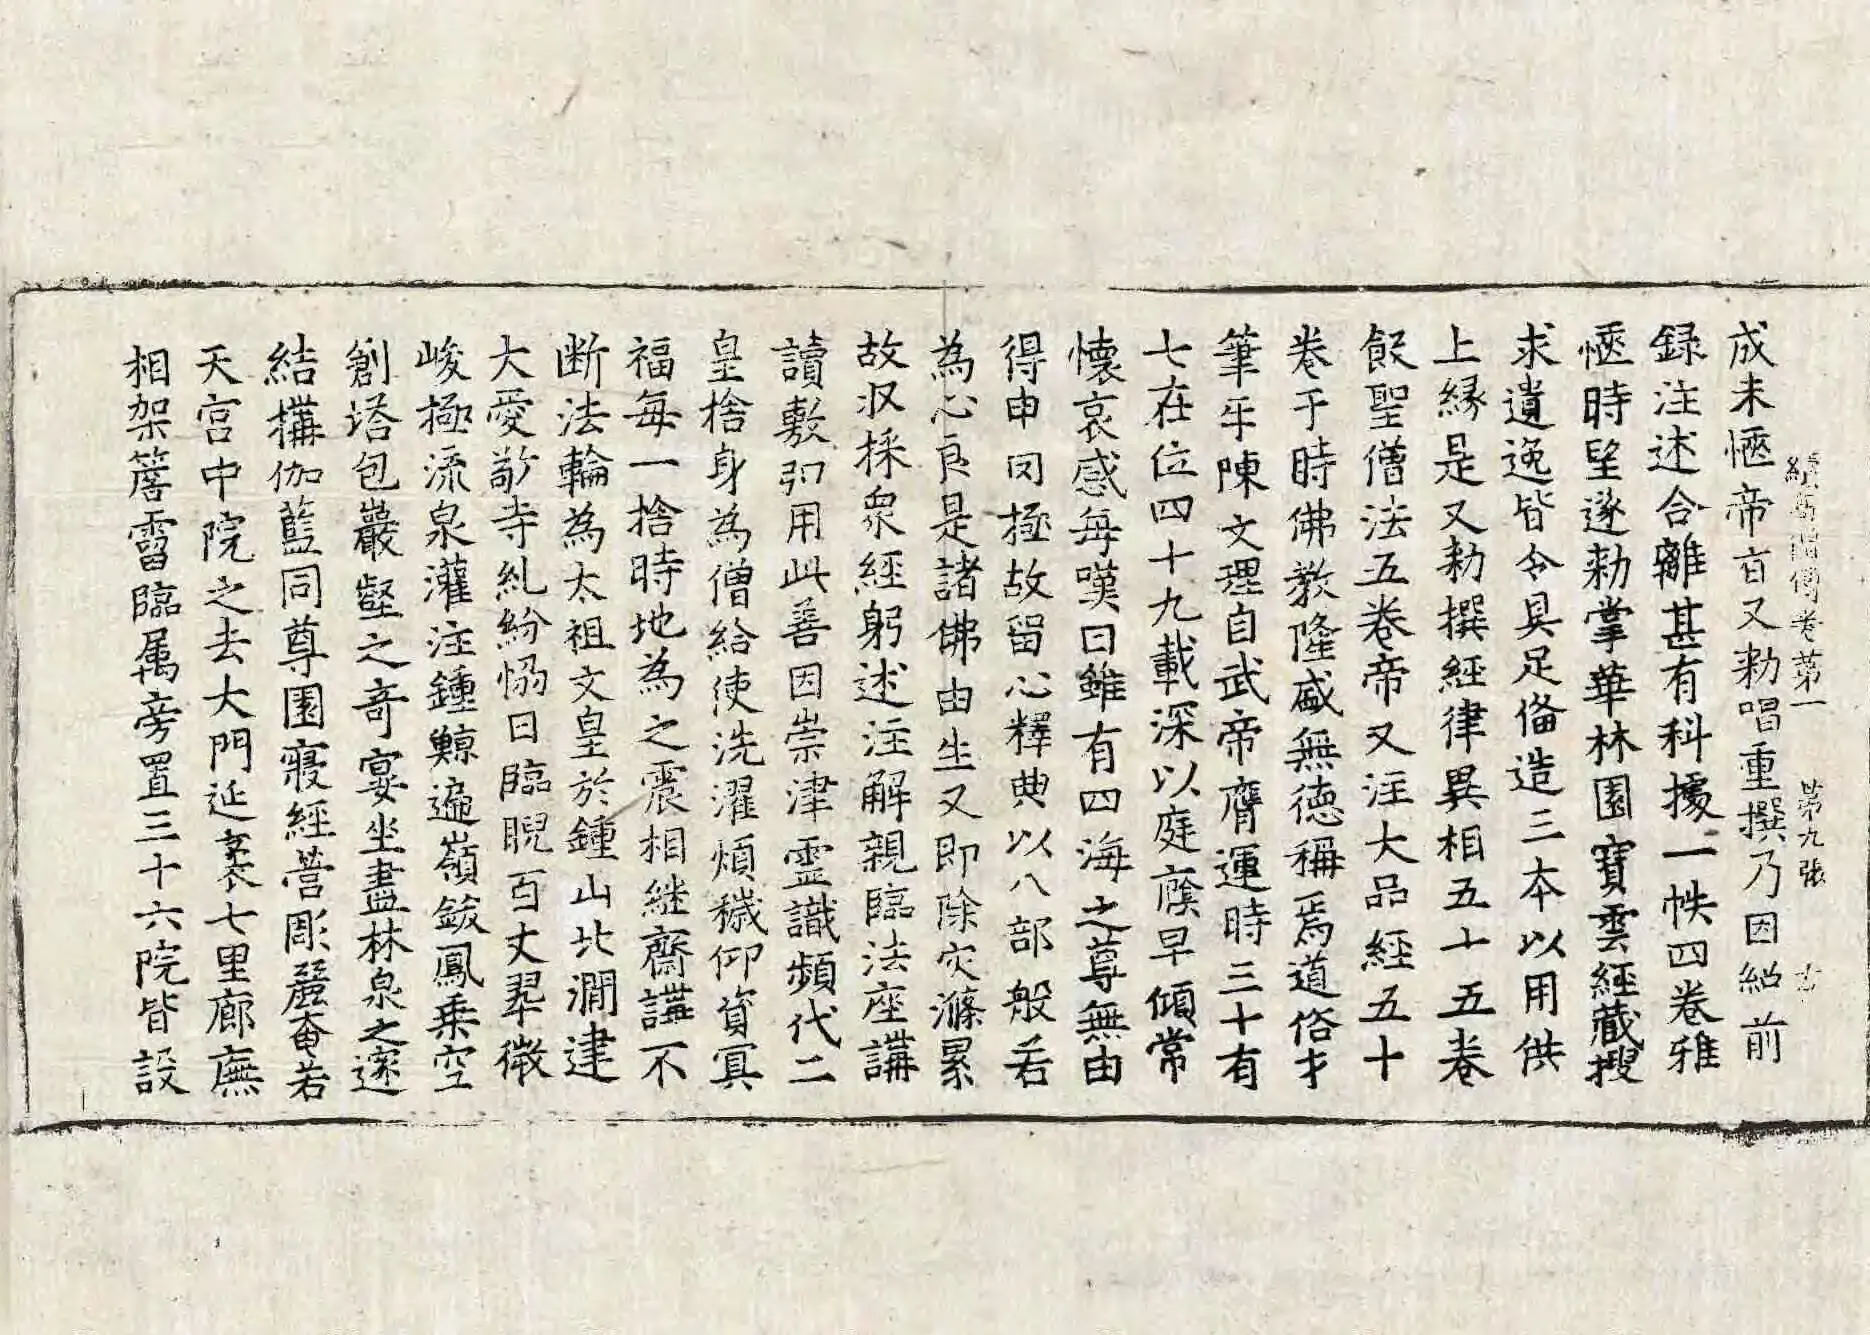 成未愜帝旨又勑唱重撰乃因紹前
續高僧傳卷第一 第九張
録注述合離甚有科據一帙四卷雅
愜時望遂勑掌華林園寳雲經藏搜
求遺逸皆令具足俻造三本以用供
上縁是又勑撰經律異相五十五卷
飯聖僧法五卷帝又注大品經五十
卷于時佛教隆盛無德稱焉道俗才
筆牢陳文理自武帝膺運時三十有
七在位四十九載深以庭廕早傾常
懷哀感每嘆曰雖有四海之尊無由
得申罔極故留心釋典以八部般若
為心良是諸佛由生又即除灾滌累
故収採衆經躬述注解親臨法座講
讀敷弘用此善因崇津靈識頻代二
皇捨身為僧給使洗濯煩穢仰資冥
福每一捨時地為之震相継齋講不
断法輪為太祖文皇於鍾山北澗建
大愛敬寺糺紛恊日臨睨百丈翠微
峻極流泉灌注鍾鯨遍嶺鈸鳳乗空
創塔包巖壑之竒宴坐盡林泉之邃
結搆伽藍同尊園寢經营彫麗奄若
天宫中院之去大門延袤七里廊廡
相架簷霤臨属旁置三十六院皆設